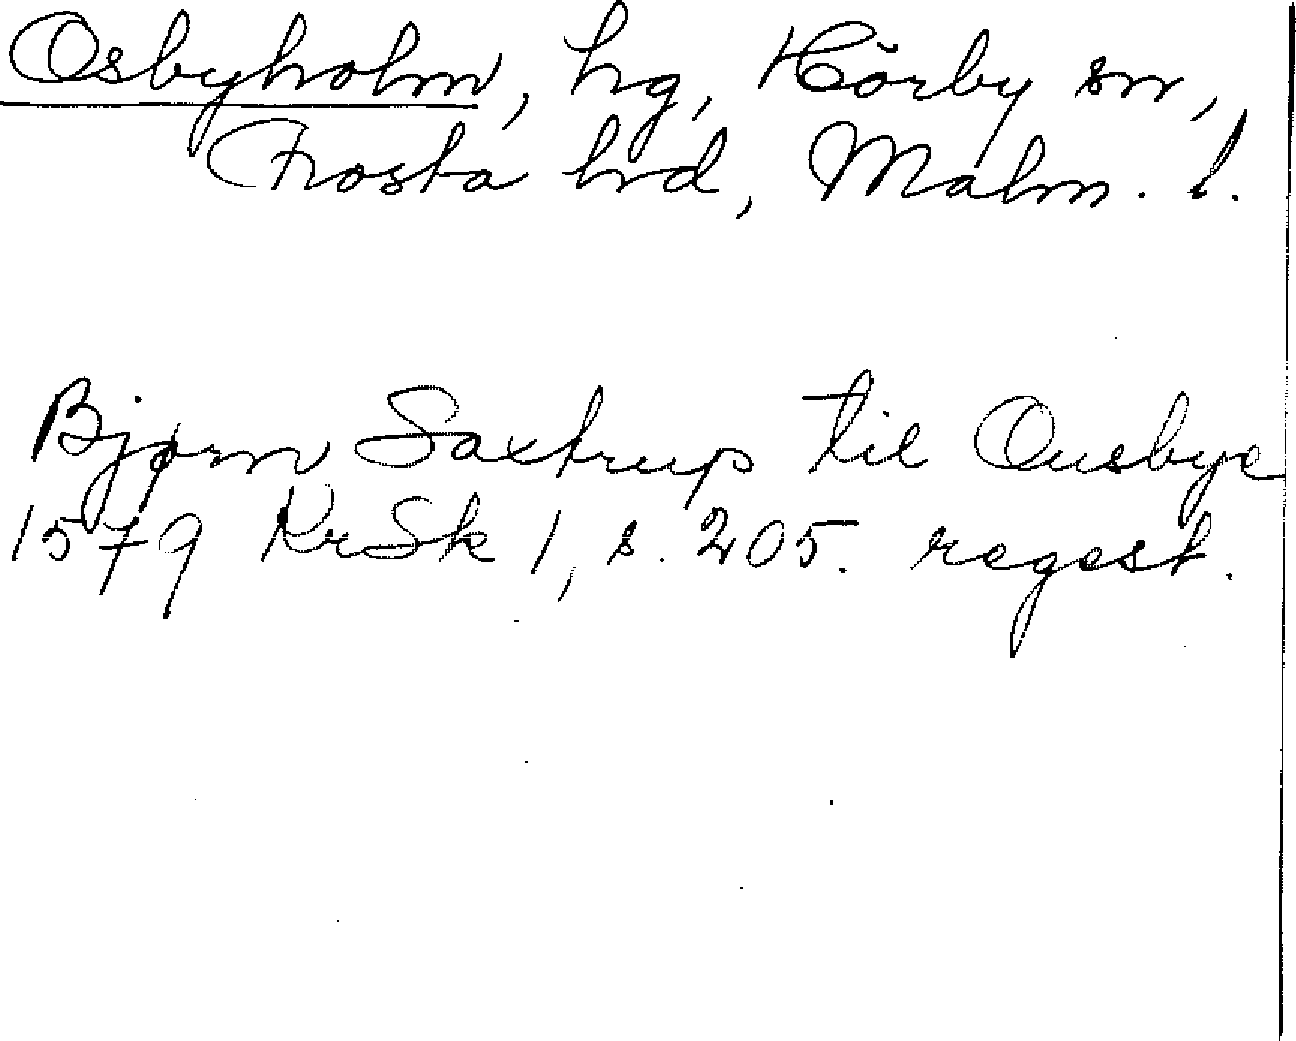 Osbyholm, hg, Hörby sn,
Frosta hrd, Malm. l.
Bjørn Saxtrup til Ousbye
1579 KrSk 1, s. 205. regest.